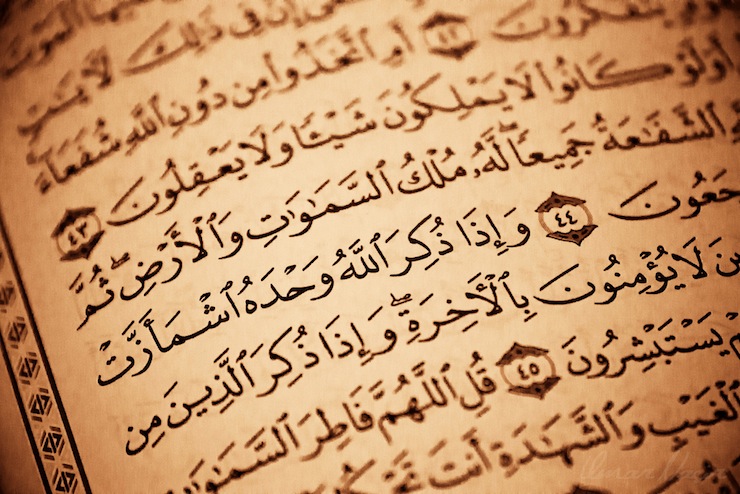 ٱلْمَوْتَ
إِنَّ فِى ذَٰلِكَ لَءَايَٰتٍ
يَتَفَكَّرُونَ ٤٢ أَمِ ٱتَّخَذُوا۟ مِن دُونِ ٱللَّهِ شُفَعَآءَ
أَوَلَوْ كَانُوا۟ لَا يَمْلِكُونَ شَيْـًٔا وَلَا يَعْقِلُونَ ٤٣
ٱلشَّفَٰعَةُ جَمِيعًا ۖ لَّهُۥ مُلْكُ ٱلسَّمَٰوَٰتِ وَٱلْأَرْضِ ۖ ثُمَّ
جَعُونَ ٤٤ وَإِذَا ذُكِرَ ٱللَّهُ وَحْدَهُ ٱشْمَأَزَّتْ
ينَ لَا يُؤْمِنُونَ بِٱلْأَخِرَةِ ۖ وَإِذَا ذُكِرَ ٱلَّذِينَ مِن
يَسْتَبْشِرُونَ ٤٥ قُلِ ٱللَّهُمَّ فَاطِرَ ٱلسَّمَٰوَٰتِ
ٱلْغَيْبِ وَٱلشَّهَٰدَةِ أَنتَ تَحْكُمُ